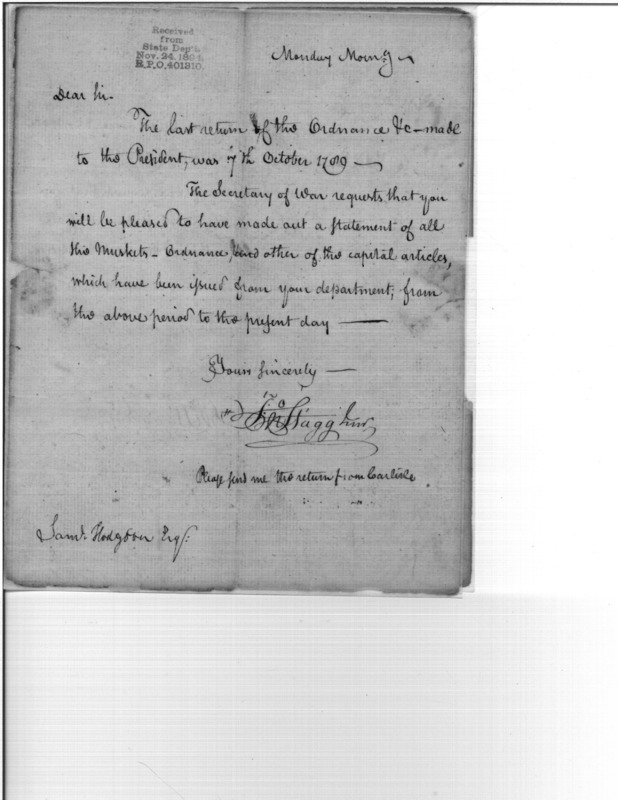 Received
from
State Dep't.
Nov. 24. 1894.
R.P.O. 401310.
Monday Morn.g
Dear Sir.
The last return of the Ordnance &c - made
to the President, was 7th October 1789 —
The Secretary of War requests that you
will be pleased to have made out a statement of all
the Muskets - Ordnance and other of the capital articles,
which have been issued from your department; from
the above period to the present day —
Yours Sincerely —
Jno Stagg Junr
Please send me the return from Carlisle
Saml. Hodgdon Esqr.